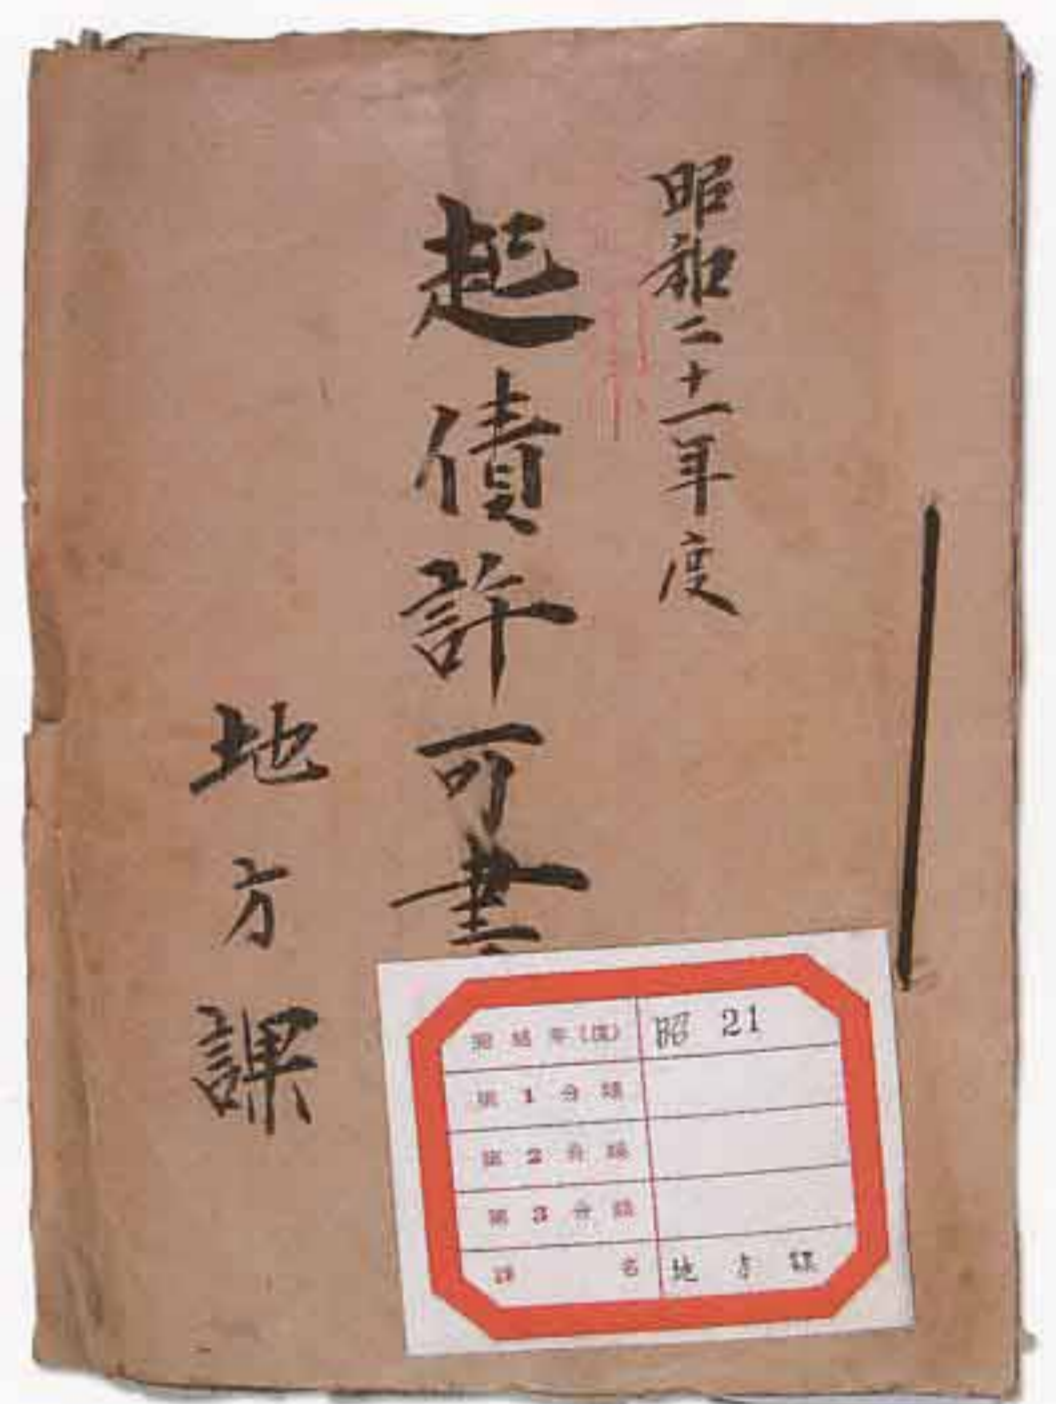 昭和二十一年度
起債許可書
地方課
完結年(度) 昭 21
第1分類
第2分類
第3分類
課名 地方課